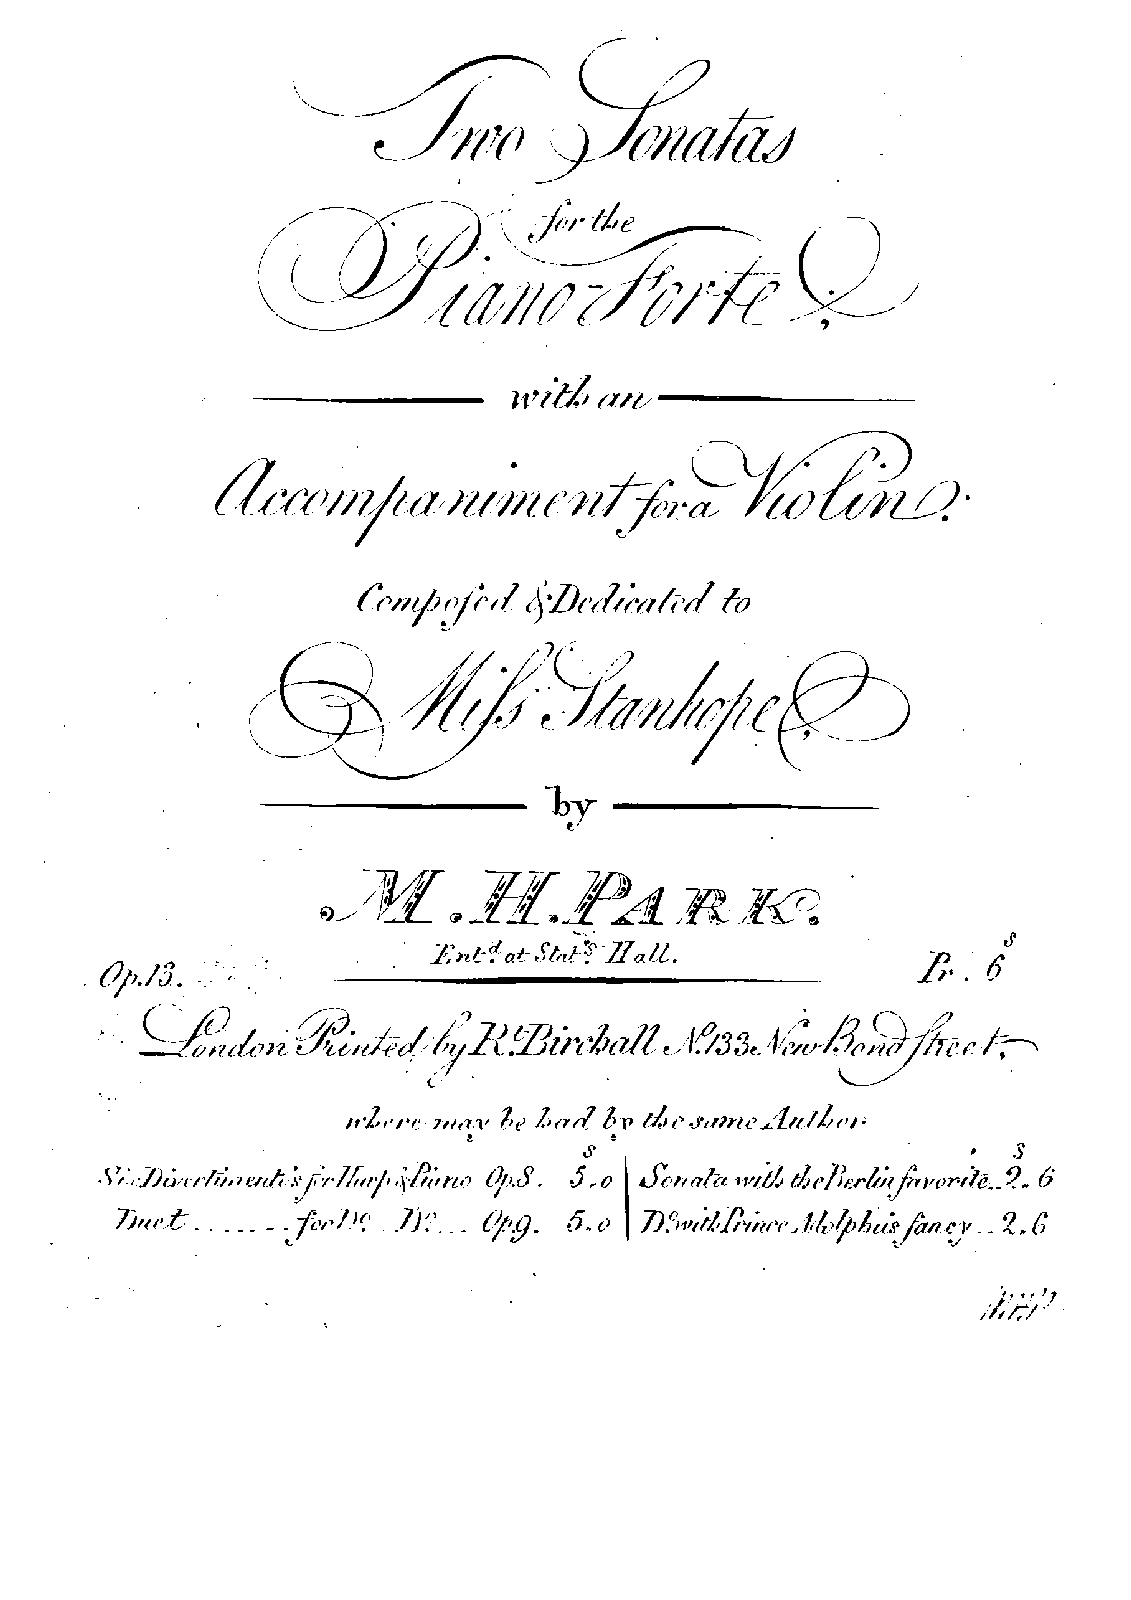 Two Sonatas
for the
Piano-Forte,
with an
Accompaniment for a Violin.
Compoſed & Dedicated to
Miſs Stanhope,
by
M. H. PARK.
Entd. at Stats. Hall.
Op. 13. Pr. 6s
London Printed by Rt. Birchall No. 133 New Bond Street,
where may be had by the same Author
Six Divertimentis for Harp & Piano Op 8. 5s.0 | Sonata with the Berlin favorite.. 2s.6
Duet ....... for Do. Do. ... Op 9. 5.0 | Do. with Prince Adolphus fancy .. 2.6